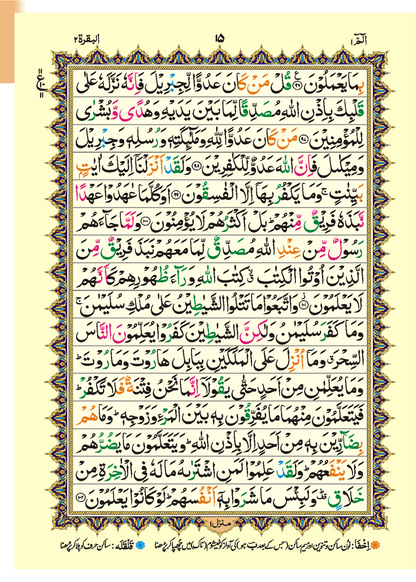 الٓمّٓ ١ ١٥ البقرة ٢
بِمَا يَعْمَلُوْنَ ۝۹۶ قُلْ مَنْ كَانَ عَدُوًّا لِّجِبْرِيْلَ فَاِنَّهٗ نَزَّلَهٗ عَلٰى
قَلْبِكَ بِاِذْنِ اللّٰهِ مُصَدِّقًا لِّمَا بَيْنَ يَدَيْهِ وَهُدًى وَّبُشْرٰى
لِلْمُؤْمِنِيْنَ ۝۹۷ مَنْ كَانَ عَدُوًّا لِّلّٰهِ وَمَلٰٓئِكَتِهٖ وَرُسُلِهٖ وَجِبْرِيْلَ
وَمِيْكٰىلَ فَاِنَّ اللّٰهَ عَدُوٌّ لِّلْكٰفِرِيْنَ ۝۹۸ وَلَقَدْ اَنْزَلْنَاۤ اِلَيْكَ اٰيٰتٍۭ
بَيِّنٰتٍ ۚ وَمَا يَكْفُرُ بِهَاۤ اِلَّا الْفٰسِقُوْنَ ۝۹۹ اَوَكُلَّمَا عٰهَدُوْا عَهْدًا
نَّبَذَهٗ فَرِيْقٌ مِّنْهُمْ ؕ بَلْ اَكْثَرُهُمْ لَا يُؤْمِنُوْنَ ۝۱۰۰ وَلَمَّا جَآءَهُمْ
رَسُوْلٌ مِّنْ عِنْدِ اللّٰهِ مُصَدِّقٌ لِّمَا مَعَهُمْ نَبَذَ فَرِيْقٌ مِّنَ
الَّذِيْنَ اُوْتُوا الْكِتٰبَ ۙ كِتٰبَ اللّٰهِ وَرَآءَ ظُهُوْرِهِمْ كَاَنَّهُمْ
لَا يَعْلَمُوْنَ ۝۱۰۱ وَاتَّبَعُوْا مَا تَتْلُوا الشَّيٰطِيْنُ عَلٰى مُلْكِ سُلَيْمٰنَ ۚ
وَمَا كَفَرَ سُلَيْمٰنُ وَلٰكِنَّ الشَّيٰطِيْنَ كَفَرُوْا يُعَلِّمُوْنَ النَّاسَ
السِّحْرَ ۗ وَمَاۤ اُنْزِلَ عَلَى الْمَلَكَيْنِ بِبَابِلَ هَارُوْتَ وَمَارُوْتَ ؕ
وَمَا يُعَلِّمٰنِ مِنْ اَحَدٍ حَتّٰى يَقُوْلَاۤ اِنَّمَا نَحْنُ فِتْنَةٌ فَلَا تَكْفُرْ ؕ
فَيَتَعَلَّمُوْنَ مِنْهُمَا مَا يُفَرِّقُوْنَ بِهٖ بَيْنَ الْمَرْءِ وَزَوْجِهٖ ؕ وَمَا هُمْ
بِضَآرِّيْنَ بِهٖ مِنْ اَحَدٍ اِلَّا بِاِذْنِ اللّٰهِ ؕ وَيَتَعَلَّمُوْنَ مَا يَضُرُّهُمْ
وَلَا يَنْفَعُهُمْ ؕ وَلَقَدْ عَلِمُوْا لَمَنِ اشْتَرٰىهُ مَا لَهٗ فِى الْاٰخِرَةِ مِنْ
خَلَاقٍ ؕ وَلَبِئْسَ مَا شَرَوْا بِهٖۤ اَنْفُسَهُمْ ؕ لَوْ كَانُوْا يَعْلَمُوْنَ ۝۱۰۲
منزل ١
اِخْفَا: نون ساکن وتنوین اور میم ساکن قَلْقَلَه: ساکن حرف کو ہلا کر پڑھنا